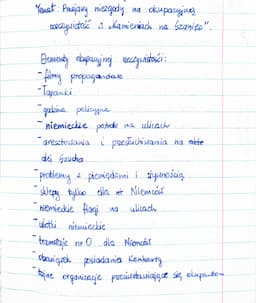 Temat: Przejawy niezgody na okupacyjną
rzeczywistość w "Kamieniach na Szaniec".
Elementy okupacyjnej rzeczywistości:
- filmy propagandowe
- łapanki
- godzina policyjna
- niemieckie patrole na ulicach
- aresztowania i przesłuchiwania na
alei Szucha
- problemy z pieniędzmi i żywnością
- sklepy tylko dla Niemców
- niemieckie flagi na ulicach
- ulotki niemieckie
- tramwaje nr 0 dla Niemców
- obowiązek posiadania Kenkarty
- tajne organizacje przeciwstawiające się okupantom